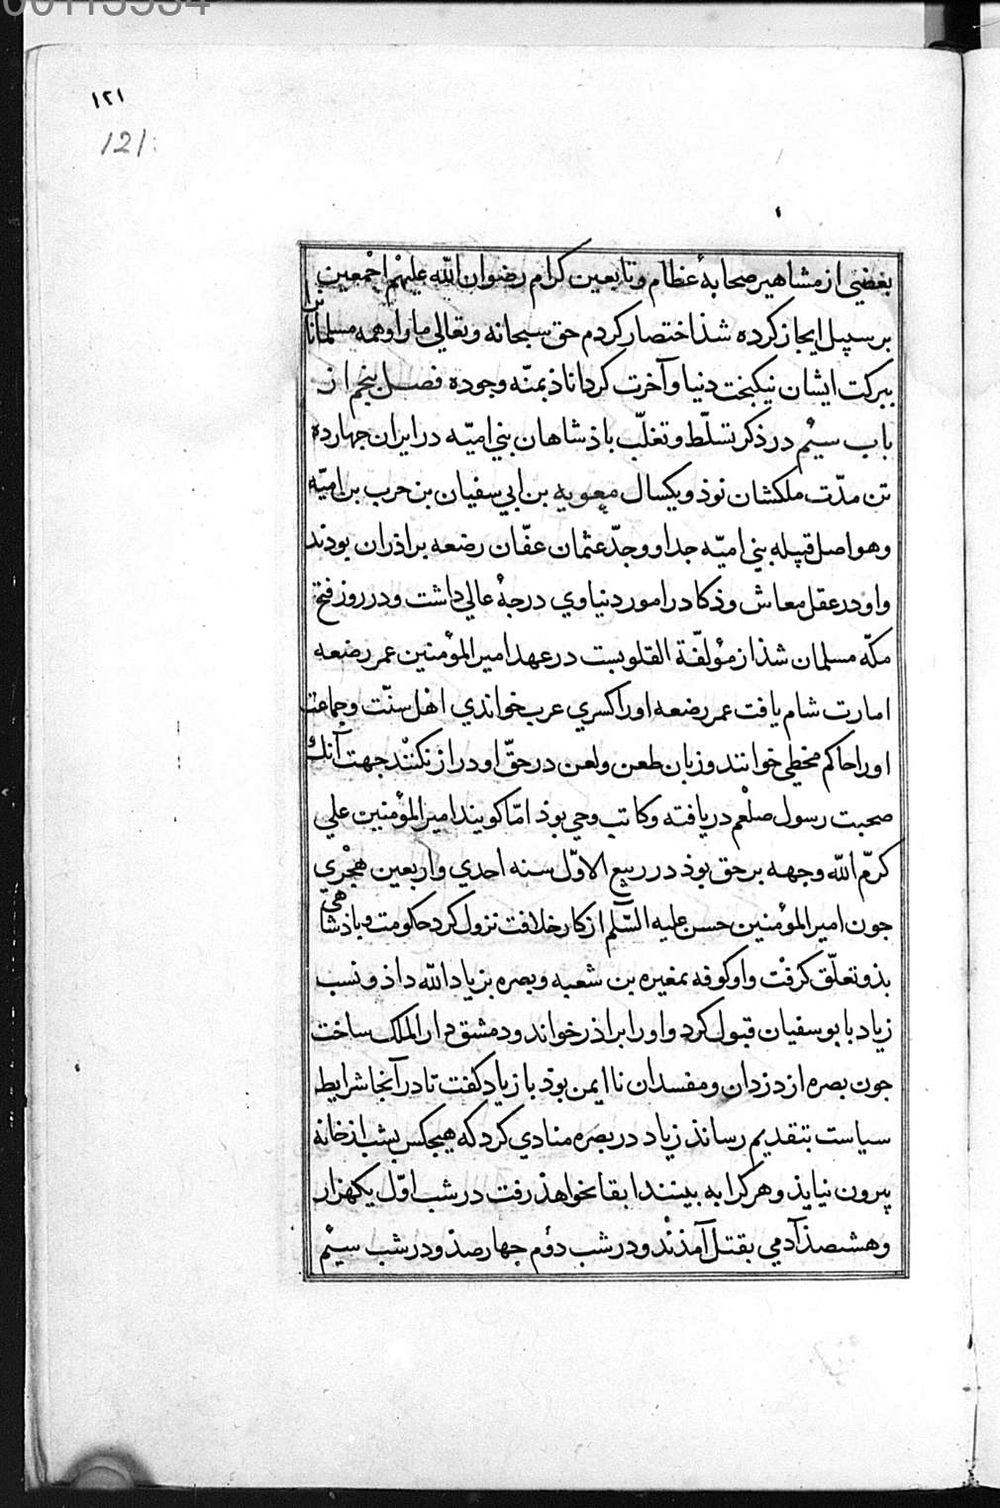 00113534
١٢١
121:
بعضی از مشاهیر صحابهٔ عظام و تابعین کرام رضوان اللّه علیهم اجمعین
بر سبیل ایجاز کرده شذ اختصار کردم حق سبحانه و تعالی ما و او همه مسلمانانرا
ببرکت ایشان نیکبخت دنیا و آخرت کرداناذ بمنّه وجوده فصل پنجم از
باب سیُم در ذکر تسلّط و تغلّب باذشاهان بنی امیّه در ایران جهارده
تن مدّت ملکشان نوذ و یکسال معویه بن ابی سفیان بن حرب بن امیّه
وهو اصل قبیله بنی امیّه جد او و جدّ عثمان عفّان رضعه براذران بودند
و او در عقل معاش و ذکا در امور دنیاوی درجهٔ عالی داشت و در روز فتح
مکّه مسلمان شذ از مؤلفّة القلوبست در عهد امیر المؤمنین عمر رضعه
امارت شام یافت عمر رضعه او را کسری عرب خواندی اهل سنّت و جماعت
او را حاکم مخطی خوانند و زبان طعن و لعن در حقّ او دراز نکنند جهت آنک
صحبت رسول صلعم دریافته و کاتب وحی بوذ امّا کویند امیر المؤمنین علی
کرّم اللّه وجهه بر حق بوذ در ربیع الاوّل سنه احدی و اربعین هجری
جون امیر المؤمنین حسن علیه السّلم از کار خلافت نزول کرد حکومت و باذشاهی
بذو تعلّق کرفت و او کوفه بمغیره بن شعبه و بصره بزیاد اللّه داذ و نسب
زیاد با بو سفیان قبول کرد و او را براذر خواند و دمشق دار الملک ساخت
جون بصره از دزدان و مفسدان نا ایمن بوذ با زیاد کفت تا در آنجا شرایط
سیاست بتقدیم رسانذ زیاد در بصره منادی کرد که هیجکس بشب از خانه
بیرون نیایذ و هر کرا به بینند ابقا نخواهذ رفت در شب اوّل یکهزار
و هشتصذ آدمی بقتل آمذند و در شب دوُم جهارصذ و در شب سیُم